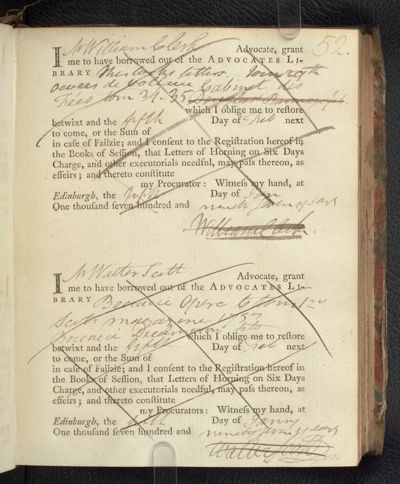 52.
I Mr William Clerk Advocate, grant
me to have borrowed out of the ADVOCATES LI-
BRARY
Cabinet des
Fées tom 34. 35
which I oblige me to restore
betwixt and the fifth Day of Feb next
to come, or the Sum of
in case of Failzie; and I consent to the Registration hereof in
the Books of Session, that Letters of Horning on Six Days
Charge, and other executorials needful, may pass thereon, as
effeirs; and thereto constitute
my Procurator: Witness my hand, at
Edinburgh, the fifth Day of Jan
One thousand seven hundred and ninety seven years
William Clerk
I Mr Walter Scott Advocate, grant
me to have borrowed out of the ADVOCATES LI-
BRARY Bocacce Opere
Scots magazine
which I oblige me to restore
betwixt and the Day of Feb next
to come, or the Sum of
in case of Failzie; and I consent to the Registration hereof in
the Books of Session, that Letters of Horning on Six Days
Charge, and other executorials needful, may pass thereon, as
effeirs; and thereto constitute
my Procurators: Witness my hand, at
Edinburgh, the Day of
One thousand seven hundred and ninety seven years
Walter Scott